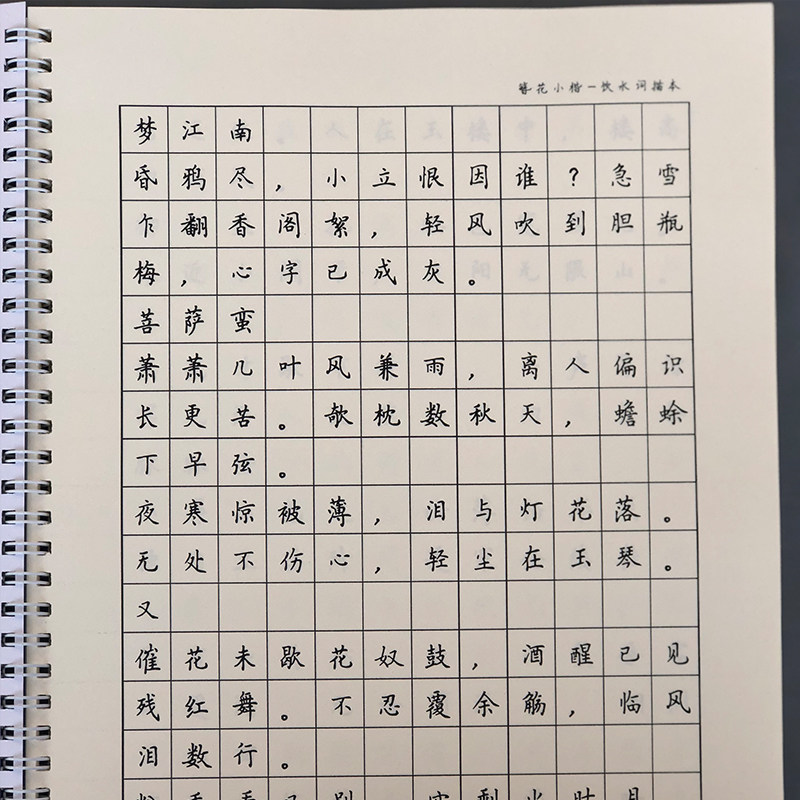 簪花小楷-饮水词描本
梦江南
昏鸦尽，小立恨因谁？急雪
乍翻香阁絮，轻风吹到胆瓶
梅，心字已成灰。
菩萨蛮
萧萧几叶风兼雨，离人偏识
长更苦。欹枕数秋天，蟾蜍
下早弦。
夜寒惊被薄，泪与灯花落。
无处不伤心，轻尘在玉琴。
又
催花未歇花奴鼓，酒醒已见
残红舞。不忍覆余觞，临风
泪数行。